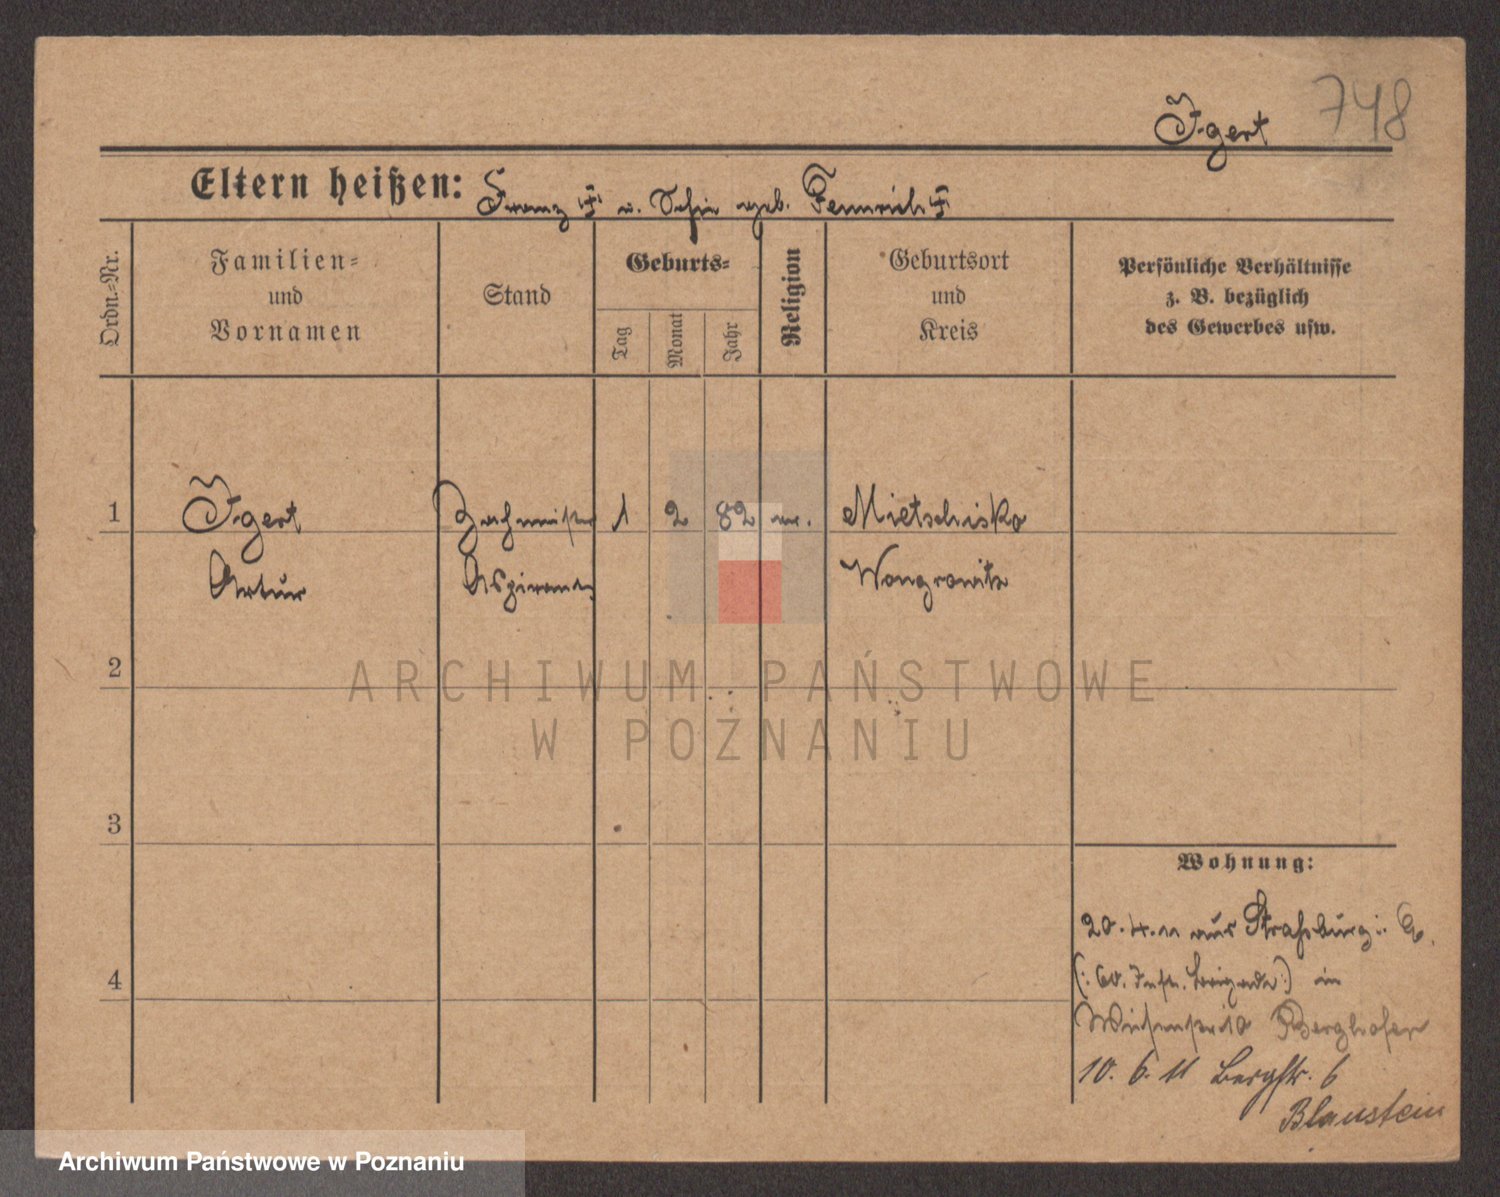 Igert 748
Eltern heißen: Franz u. Sofie geb. Fennrich
Ordn.=Nr.
Familien=
und
Vornamen
Stand
Geburts=
Tag
Monat
Jahr
Religion
Geburtsort
und
Kreis
Persönliche Verhältnisse
z. B. bezüglich
des Gewerbes usw.
1 Igert 1 2 82 Mietschisko
Artur Aspirant Wongrowitz
2
3
4
Wohnung:
20.4.11 aus Straßburg i. E.
(: 60. Inft. Brigade :) in
10 Berghofer
10. 6. 11 Bergstr. 6
Blaustein
ARCHIWUM PAŃSTWOWE
W POZNANIU
Archiwum Państwowe w Poznaniu